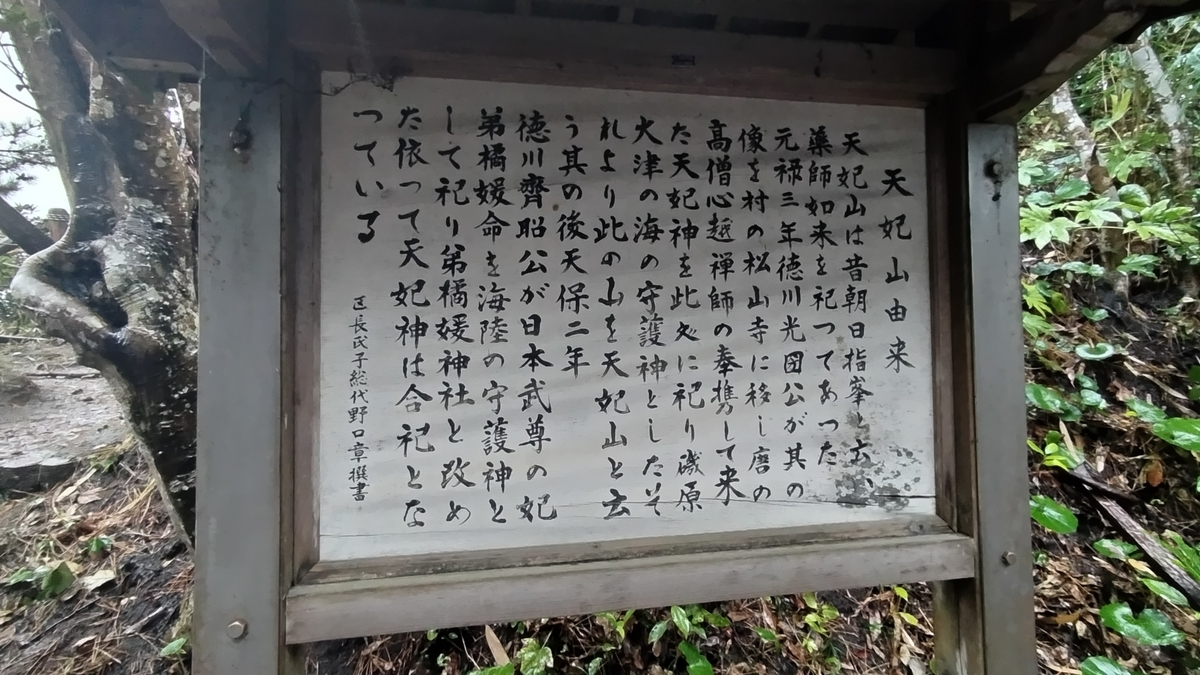 天妃山由来
天妃山は昔朝日指峯と云い
薬師如来を祀つてあつた
元禄三年徳川光圀公が其の
像を村の松山寺に移し唐の
高僧心越禅師の奉携して来
た天妃神を此处に祀り磯原
大津の海の守護神としたそ
れより此の山を天妃山と云
う其の後天保二年
徳川齊昭公が日本武尊の妃
弟橘媛命を海陸の守護神と
して祀り弟橘媛神社と改め
た依つて天妃神は合祀とな
つている
区長氏子総代野口章撰書